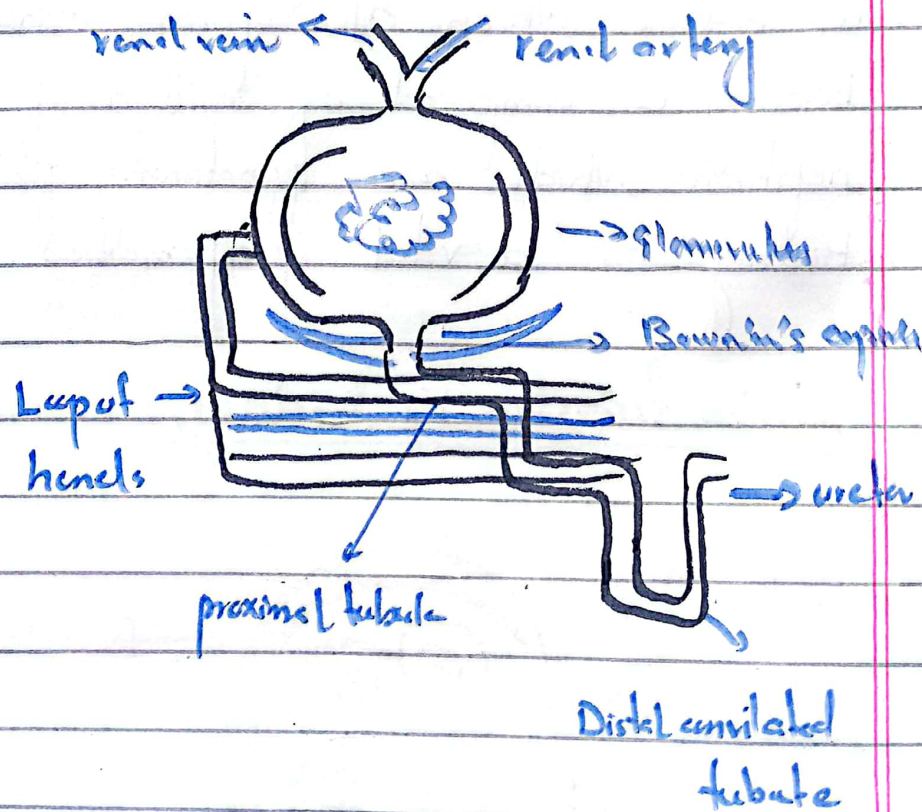 renal vein
renal artery
Glomerulus
Bowmin's capsule
Loop of
henels
ureter
proximal tubule
Distal convilated
tubute